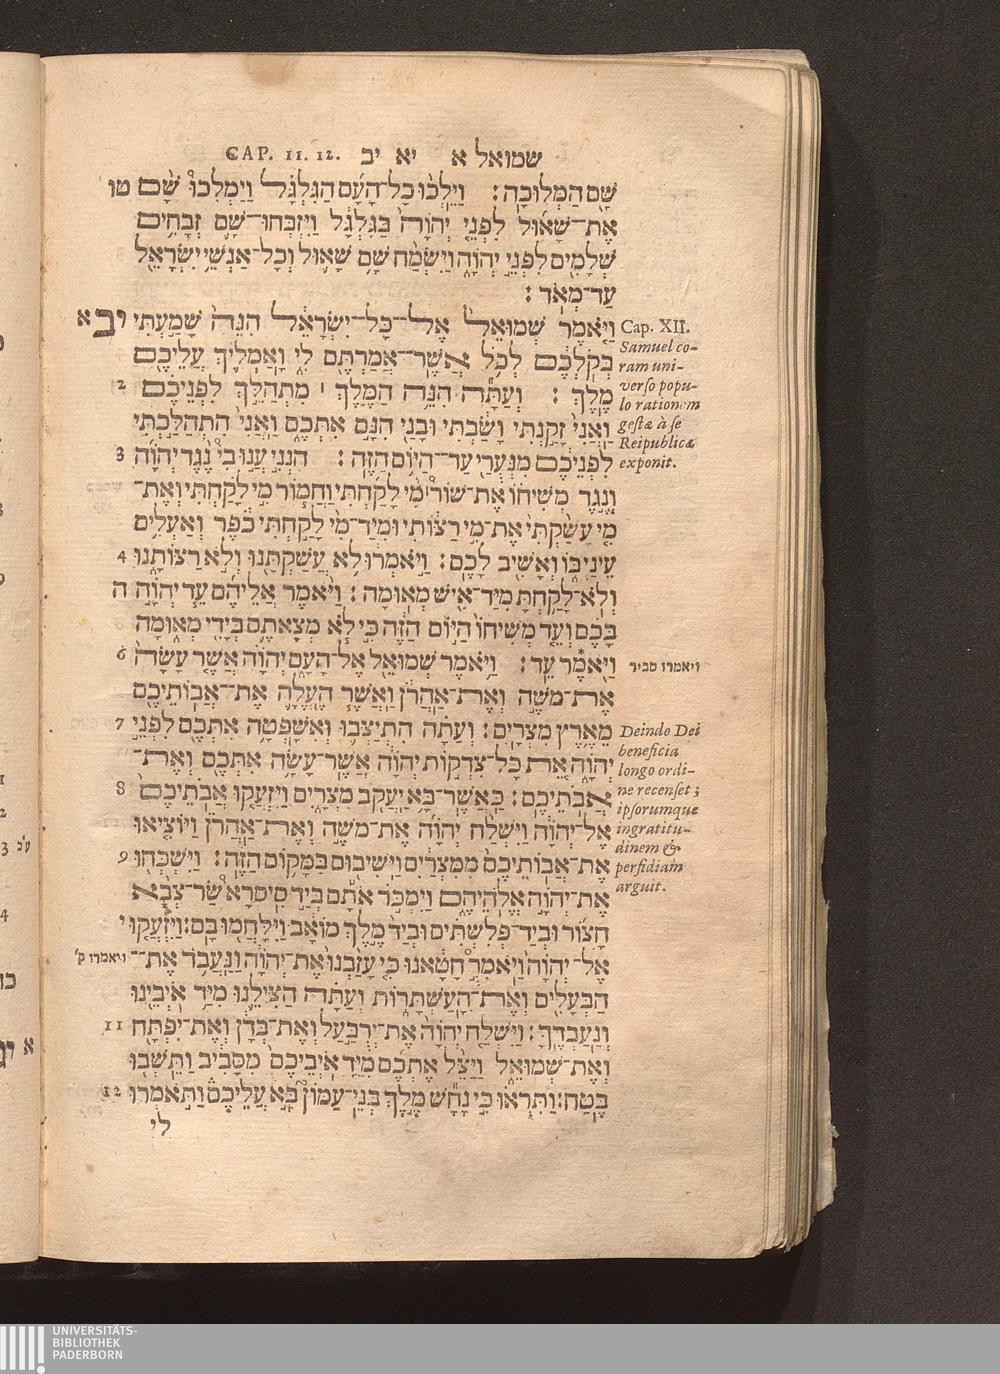 שמואל א יא יב CAP. 11. 12.
שָׁ֖ם הַמְּלוּכָֽה׃ וַיֵּלְכ֨וּ כָל־הָעָ֜ם הַגִּלְגָּ֗ל וַיַּמְלִכוּ֩ שָׁ֨ם טו
אֶת־שָׁא֜וּל לִפְנֵ֤י יְהוָֹה֙ בַּגִּלְגָּ֔ל וַיִּזְבְּחוּ־שָׁ֛ם זְבָחִ֥ים
שְׁלָמִ֖ים לִפְנֵ֣י יְהוָֹ֑ה וַיִּשְׂמַ֨ח שָׁ֥ם שָׁא֛וּל וְכָל־אַנְשֵׁ֥י יִשְׂרָאֵ֖ל
עַד־מְאֹֽד׃
וַיֹּ֤אמֶר שְׁמוּאֵל֙ אֶל־כָּל־יִשְׂרָאֵ֔ל הִנֵּה֙ שָׁמַ֣עְתִּי יב א
בְקֹֽלְכֶ֔ם לְכֹ֥ל אֲשֶׁר־אֲמַרְתֶּ֖ם לִ֑י וָאַמְלִ֥יךְ עֲלֵיכֶ֖ם
מֶֽלֶךְ׃ וְעַתָּ֞ה הִנֵּ֥ה הַמֶּ֣לֶךְ ׀ מִתְהַלֵּ֣ךְ לִפְנֵיכֶ֗ם 2
וַאֲנִי֙ זָקַ֣נְתִּי וָשַׂ֔בְתִּי וּבָנַ֖י הִנָּ֣ם אִתְּכֶ֑ם וַאֲנִי֙ הִתְהַלַּ֣כְתִּי
לִפְנֵיכֶ֔ם מִנְּעֻרַ֖י עַד־הַיּ֥וֹם הַזֶּֽה׃ הִנְנִ֣י עֲנ֣וּ בִי֩ נֶ֨גֶד יְהוָֹ֜ה 3
וְנֶ֣גֶד מְשִׁיח֗וֹ אֶת־שׁוֹר֩ ׀ מִ֨י לָקַ֜חְתִּי וַחֲמ֧וֹר מִ֣י לָקַ֗חְתִּי וְאֶת־
מִ֤י עָשַׁ֙קְתִּי֙ אֶת־מִ֣י רַצּ֔וֹתִי וּמִיַּד־מִי֙ לָקַ֣חְתִּי כֹ֔פֶר וְאַעְלִ֥ים
עֵינַ֖י בּ֑וֹ וְאָשִׁ֖יב לָכֶֽם׃ וַיֹּ֣אמְר֔וּ לֹ֥א עֲשַׁקְתָּ֖נוּ וְלֹ֣א רַצּוֹתָ֑נוּ 4
וְלֹֽא־לָקַ֥חְתָּ מִיַּד־אִ֖ישׁ מְאֽוּמָה׃ וַיֹּ֨אמֶר אֲלֵיהֶ֜ם עֵ֧ד יְהוָֹ֣ה ה
בָּכֶ֗ם וְעֵ֤ד מְשִׁיחוֹ֙ הַיּ֣וֹם הַזֶּ֔ה כִּ֣י לֹ֧א מְצָאתֶ֛ם בְּיָדִ֖י מְא֑וּמָה
וַיֹּ֖אמֶר* עֵֽד׃ וַיֹּ֥אמֶר שְׁמוּאֵ֖ל אֶל־הָעָ֑ם יְהוָֹ֗ה אֲשֶׁ֤ר עָשָׂה֙ 6
אֶת־מֹשֶׁ֣ה וְאֶֽת־אַהֲרֹ֔ן וַאֲשֶׁ֧ר הֶעֱלָ֛ה אֶת־אֲבוֹתֵיכֶ֖ם
מֵאֶ֥רֶץ מִצְרָֽיִם׃ וְעַתָּ֗ה הִֽתְיַצְּב֛וּ וְאִשָּׁפְטָ֥ה אִתְּכֶ֖ם לִפְנֵ֣י 7
יְהוָֹ֑ה אֵ֚ת כָּל־צִדְק֣וֹת יְהוָֹ֔ה אֲשֶׁר־עָשָׂ֥ה אִתְּכֶ֖ם וְאֶת־
אֲבֹתֵיכֶֽם׃ כַּֽאֲשֶׁר־בָּ֥א יַעֲקֹ֖ב מִצְרָ֑יִם וַיִּזְעֲק֤וּ אֲבֹֽתֵיכֶם֙ 8
אֶל־יְהוָֹ֔ה וַיִּשְׁלַ֨ח יְהוָֹ֜ה אֶת־מֹשֶׁ֣ה וְאֶֽת־אַהֲרֹ֗ן וַיּוֹצִ֤יאוּ
אֶת־אֲבוֹתֵיכֶם֙ מִמִּצְרַ֔יִם וַיֹּשִׁיב֖וּם בַּמָּק֥וֹם הַזֶּֽה׃ וַֽיִּשְׁכְּח֖וּ 9
אֶת־יְהוָֹ֣ה אֱלֹהֵיהֶ֑ם וַיִּמְכֹּ֣ר אֹתָ֡ם בְּיַ֣ד סִֽיסְרָא֩ שַׂר־צְבָ֨א
חָצ֜וֹר וּבְיַד־פְּלִשְׁתִּ֗ים וּבְיַד֙ מֶ֣לֶךְ מוֹאָ֔ב וַיִּֽלָּחֲמ֖וּ בָּֽם׃ וַיִּזְעֲק֤וּ י
אֶל־יְהוָֹה֙ וַיֹּאמְר֣ חָטָ֔אנוּ כִּ֤י עָזַ֙בְנוּ֙ אֶת־יְהוָֹ֔ה וַנַּעֲבֹ֥ד אֶת־ ויאמרו ק'
הַבְּעָלִ֖ים וְאֶת־הָעַשְׁתָּר֑וֹת וְעַתָּ֗ה הַצִּילֵ֛נוּ מִיַּ֥ד אֹיְבֵ֖ינוּ
וְנַעַבְדֶֽךָּ׃ וַיִּשְׁלַ֤ח יְהוָֹה֙ אֶת־יְרֻבַּ֣עַל וְאֶת־בְּדָ֔ן וְאֶת־יִפְתָּ֖ח 11
וְאֶת־שְׁמוּאֵ֑ל וַיַּצֵּ֨ל אֶתְכֶ֜ם מִיַּ֤ד אֹֽיְבֵיכֶם֙ מִסָּבִ֔יב וַתֵּשְׁב֖וּ
בֶּֽטַח׃ וַתִּרְא֗וּ כִּֽי־נָחָ֞שׁ מֶ֣לֶךְ בְּנֵֽי־עַמּוֹן֮ בָּ֣א עֲלֵיכֶם֒ וַתֹּ֣אמְרוּ 12
לי
Cap. XII.
Samuel co-
ram uni-
verso popu-
lo rationem
gestæ à se
Reipublicæ
exponit.
ויאמרו סביר
Deinde Dei
beneficia
longo ordi-
ne recenset;
ipsorumque
ingratitu-
dinem &
perfidiam
arguit.
UNIVERSITÄTS-
BIBLIOTHEK
PADERBORN